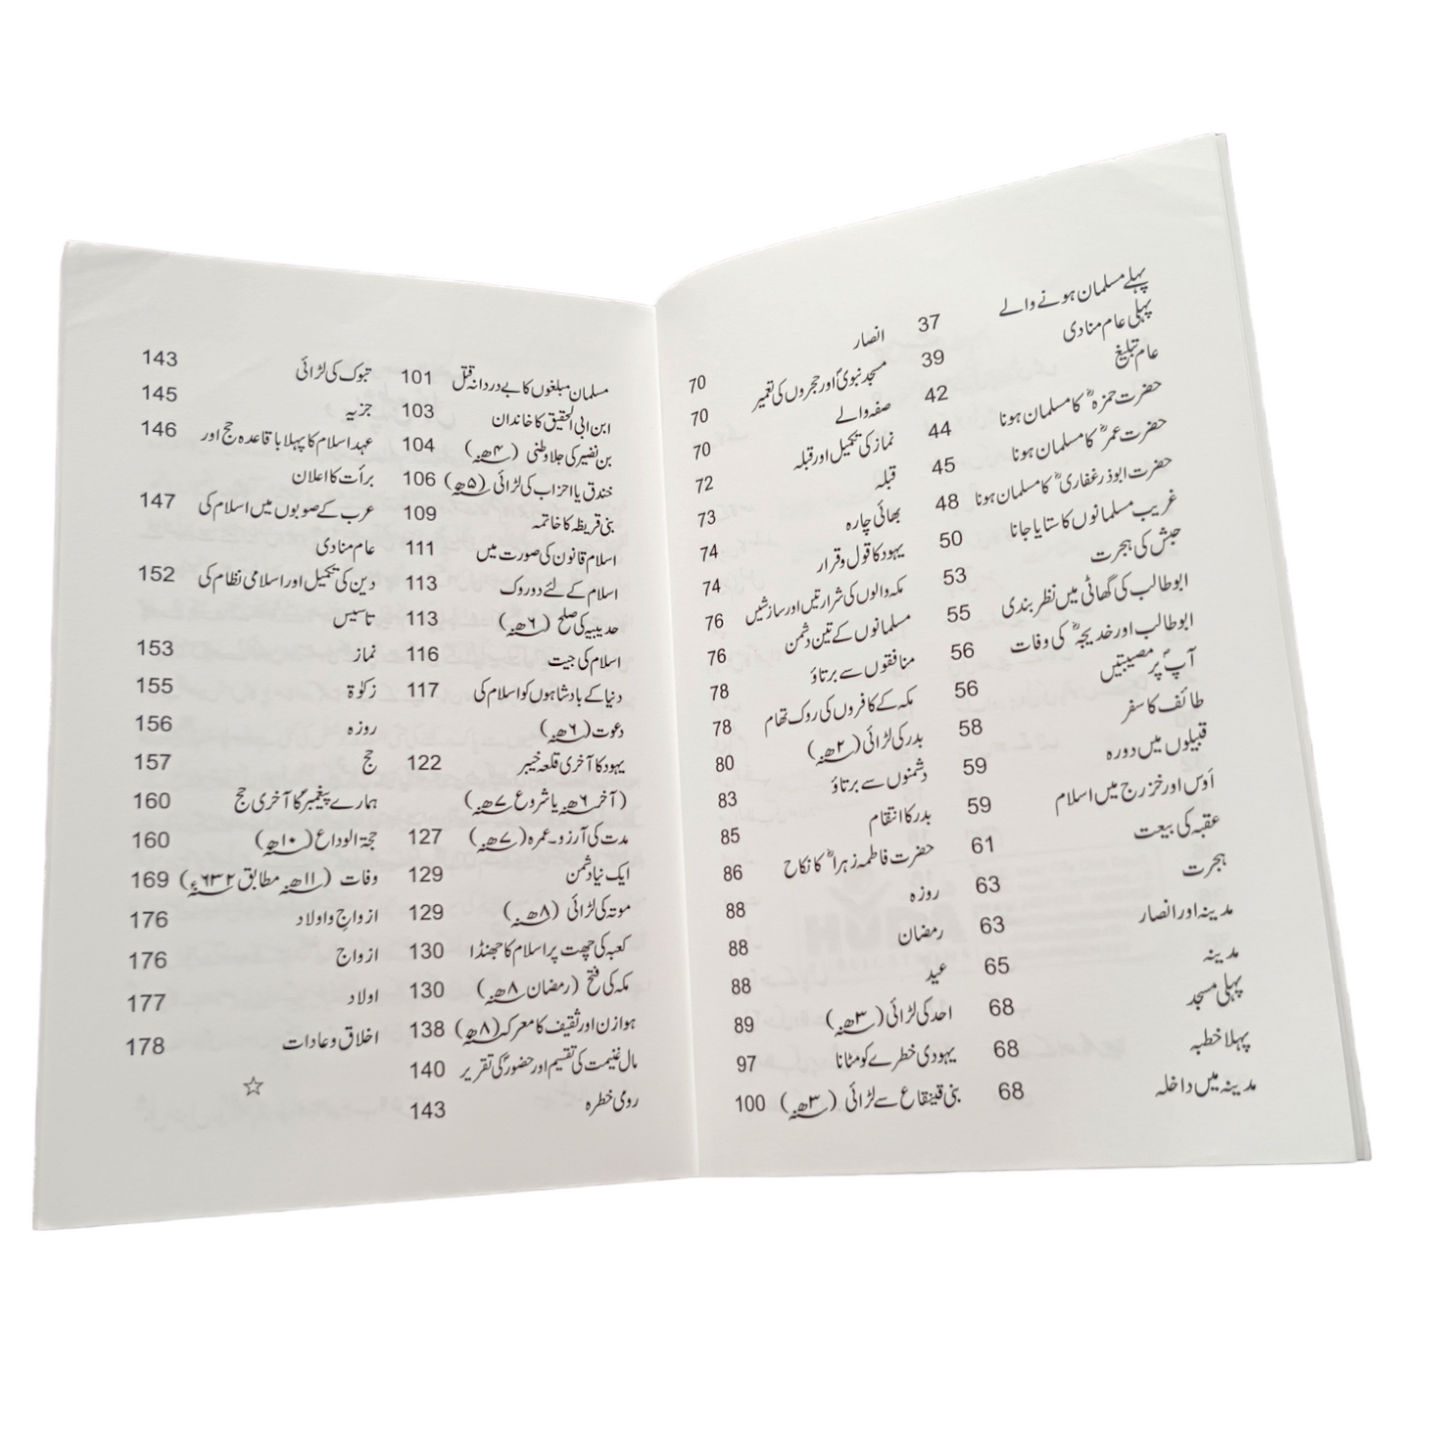 پہلے مسلمان ہونے والے 37
پہلی عام منادی 39
عام تبلیغ 42
حضرت حمزہؓ کا مسلمان ہونا 44
حضرت عمرؓ کا مسلمان ہونا 45
حضرت ابوذر غفاریؓ کا مسلمان ہونا 48
غریب مسلمانوں کا ستایا جانا 50
حبش کی ہجرت 53
ابوطالب کی گھاٹی میں نظر بندی 55
ابوطالب اور خدیجہؓ کی وفات 56
آپؐ پر مصیبتیں 56
طائف کا سفر 58
قبیلوں میں دورہ 59
اَوس اور خزرج میں اسلام 59
عقبہ کی بیعت 61
ہجرت 63
مدینہ اور انصار 63
مدینہ 65
پہلی مسجد 68
پہلا خطبہ 68
مدینہ میں داخلہ 68
انصار 70
مسجد نبویؐ اور حجروں کی تعمیر 70
صفہ والے 70
نماز کی تکمیل اور قبلہ 72
قبلہ 73
بھائی چارہ 74
یہود کا قول و قرار 74
مکہ والوں کی شرارتیں اور سازشیں 76
مسلمانوں کے تین دشمن 76
منافقوں سے برتاؤ 78
مکہ کے کافروں کی روک تھام 78
بدر کی لڑائی (۲ھ) 80
دشمنوں سے برتاؤ 83
بدر کا انتقام 85
حضرت فاطمہ زہراؓ کا نکاح 86
روزہ 88
رمضان 88
عید 88
احد کی لڑائی (۳ھ) 89
یہودی خطرے کو مٹانا 97
بنی قینقاع سے لڑائی (۳ھ) 100
مسلمان مبلغوں کا بے دردانہ قتل 101
ابن ابی الحقیق کا خاندان 103
بن نضیر کی جلاوطنی (۴ھ) 104
خندق یا احزاب کی لڑائی (۵ھ) 106
بنی قریظہ کا خاتمہ 109
اسلام قانون کی صورت میں 111
اسلام کے لئے دو روک 113
حدیبیہ کی صلح (۶ھ) 113
اسلام کی جیت 116
دنیا کے بادشاہوں کو اسلام کی 117
دعوت (۶ھ)
یہود کا آخری قلعہ خیبر 122
(آخر ۶ھ یا شروع ۷ھ)
مدت کی آرزو۔ عمرہ (۷ھ) 127
ایک نیا دشمن 129
موتہ کی لڑائی (۸ھ) 129
کعبہ کی چھت پر اسلام کا جھنڈا 130
مکہ کی فتح (رمضان ۸ھ) 130
ہوازن اور ثقیف کا معرکہ (۸ھ) 138
مال غنیمت کی تقسیم اور حضورؐ کی تقریر 140
رومی خطرہ 143
تبوک کی لڑائی 143
جزیہ 145
عہد اسلام کا پہلا باقاعدہ حج اور 146
برأت کا اعلان
عرب کے صوبوں میں اسلام کی 147
عام منادی
دین کی تکمیل اور اسلامی نظام کی 152
تاسیس
نماز 153
زکوٰۃ 155
روزہ 156
حج 157
ہمارے پیغمبرؐ کا آخری حج 160
حجۃ الوداع (۱۰ھ) 160
وفات (۱۱ھ مطابق ۶۳۲ء) 169
ازواج و اولاد 176
ازواج 176
اولاد 177
اخلاق و عادات 178